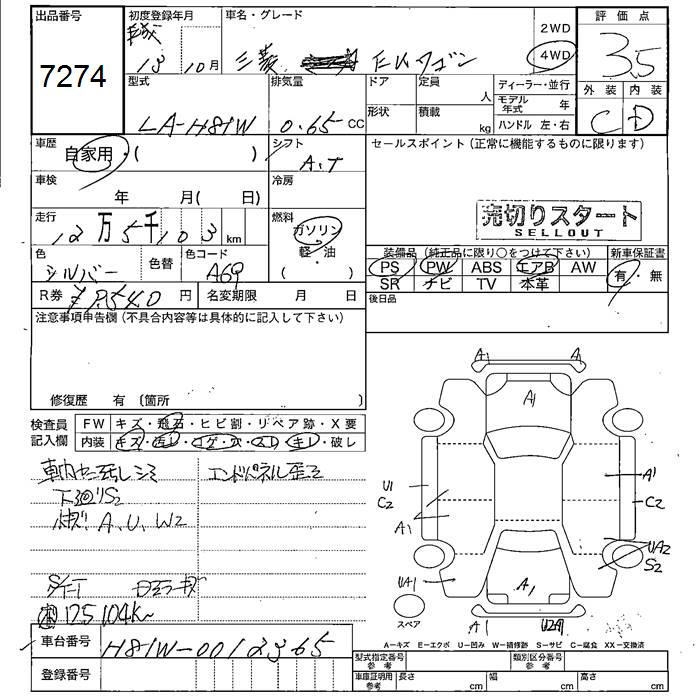 出品番号
7274
初度登録年月
13 10月
車名・グレード
三菱 EKワゴン
2WD
4WD
評価点
3.5
外装 内装
C D
型式
LA-H81W
排気量
0.65 CC
ドア
形状
定員
人
積載
kg
ディーラー・並行
モデル年式 年
ハンドル 左・右
車歴
自家用・( )
シフト
A.T
セールスポイント(正常に機能するものに限ります)
車検
年 月( 日)
冷房
売切りスタート
SELLOUT
走行
12万5千103km
燃料
ガソリン
軽・油
( )
色
シルバー
色替
色コード
A69
装備品(純正品に限り○をつけて下さい)
PS PW ABS エアB AW
SR ナビ TV 本革
新車保証書
有・無
R券 ¥ 8540円
名変期限 月 日
後日品
注意事項申告欄(不具合内容等は具体的に記入して下さい)
修復歴 有(箇所 )
検査員記入欄
FW キズ・飛石・ヒビ割・リペア跡・X要
内装 キズ・汚レ・コゲ・穴・スレ・キレ・破レ
エンドパネル歪ミ
下廻リS2
A、U、W2
125104K
A1 A
A1
U1
C2
A1
A1
C2
UA2
S2
UA1
A1
A1 U2A1
スペア
A-キズ E-エクボ U-凹み W-補修跡 S-サビ C-腐食 XX-交換済
車台番号
H81W-0012365
登録番号
型式指定番号 参考
類別区分番号 参考
車庫証明用 参考
長さ cm
幅 cm
高さ cm